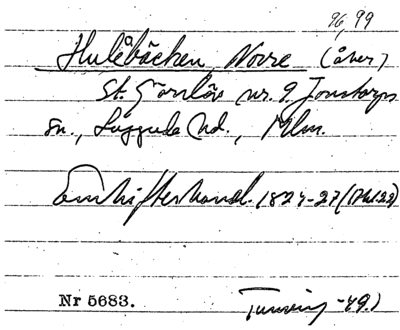 96, 99
Hulebäcken, Norre (åker)
St. Görslöv nr. 9, Jonstorps
sn., Luggude hd., Mlm.
Enskifteshandl. 1824-27 (Akt 22)
Nr 5683.
Tuneving -49.)